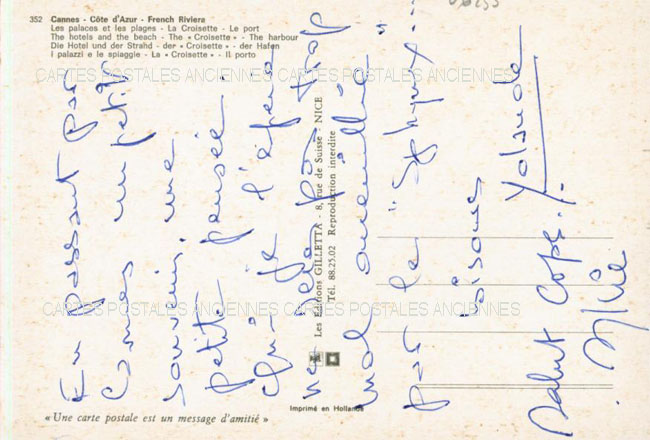 352 Cannes - Côte d'Azur - French Riviera
Les palaces et les plages - La Croisette - Le port
The hotels and the beach - The « Croisette » - The harbour
Die Hotel und der Strahd - der « Croisette » - der Hafen
I palazzi e le spiaggie - La « Croisette » - Il porto
CARTES POSTALES ANCIENNES CARTES POSTALES ANCIENNES
En passant par
Cannes un petit
souvenir, une
petite pensée
qui je l'espère
ne sera pas trop
mal accueillie
par le
Bisous
Salut
Yolande
Les Éditions GILLETTA - 8, rue de Suisse - NICE
Tél. 88.25.02 Reproduction interdite
CARTES POSTALES ANCIENNES CARTES POSTALES ANCIENNES
Imprimé en Hollande
« Une carte postale est un message d'amitié »